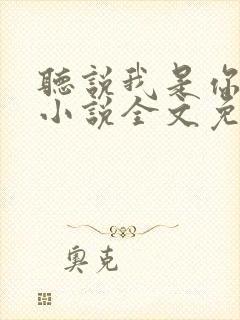 聽說我是你
小說全文免
奧克